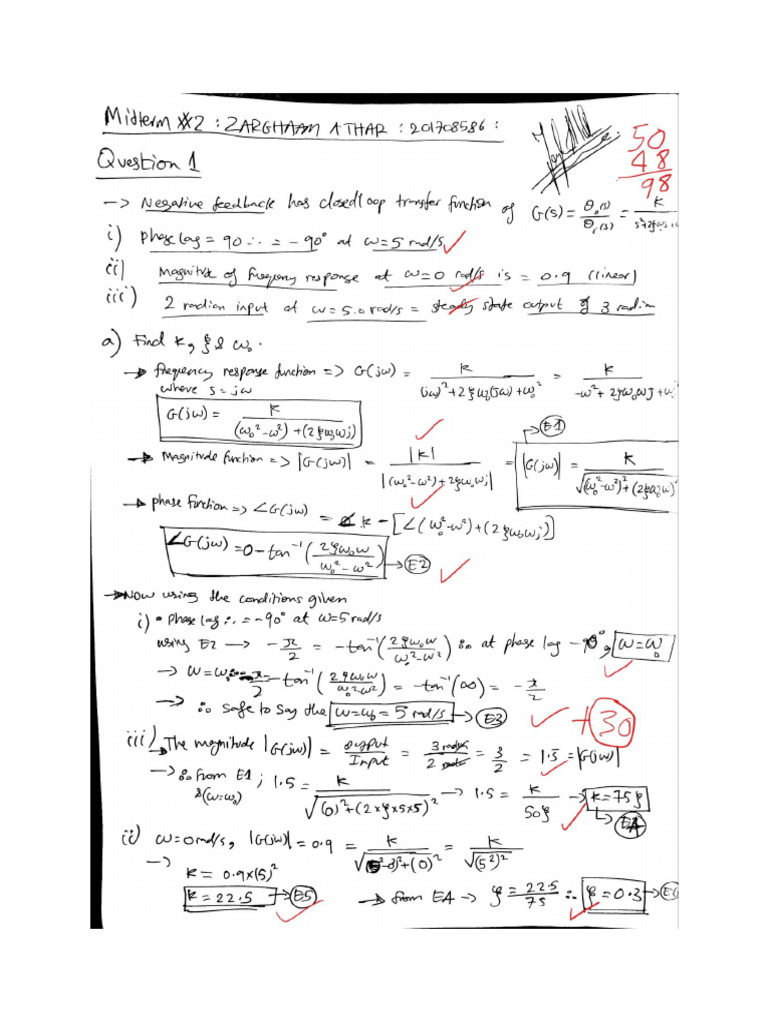 Midterm #2 : ZARGHAAM ATHAR : 201708586 :
50
48
98
Question 1
-> Negative feedback has closedloop transfer function of G(s) = θo(s)/θi(s) = K/s²+2ζωos+ω
i) phase lag = 90 ∴ = -90° at ω=5 rad/s
ii) Magnitude of frequency response at ω=0 rad/s is = 0.9 (linear)
iii) 2 radian input at ω=5.0 rad/s = steady state output of 3 radian
a) Find K, ζ & ωo.
-> frequency response function => G(jω) = K/(jω)²+2ζωo(jω)+ωo² = K/-ω²+2ζωoωj+ωo²
where s=jω
G(jω) = K/(ωo²-ω²)+(2ζωoωj)
E1
-> Magnitude function => |G(jω)| = |K|/|(ωo²-ω²)+2ζωoωj| = |G(jω)| = K/√(ωo²-ω²)²+(2ζωoω)²
-> phase function => ∠G(jω) = ∠K - [∠(ωo²-ω²)+(2ζωoωj)]
∠G(jω) = 0-tan⁻¹(2ζωoω/ωo²-ω²) -> E2
-> Now using the conditions given
i) • phase lag ∴ = -90° at ω=5 rad/s
using E2 -> -π/2 = -tan⁻¹(2ζωoω/ωo²-ω²) ∴ at phase lag -90°, ω=ωo
-> ω=ωo ∴ -π/2 = -tan⁻¹(2ζωoω/ωo²-ω²) = -tan⁻¹(∞) = -π/2
-> ∴ safe to say the ω=ωo=5 rad/s -> E3
+30
iii) The magnitude |G(jω)| = output/Input = 3 radian/2 radian = 3/2 = 1.5 = |G(jω)|
-> ∴ from E1 ; 1.5 = K/√(0)²+(2×ζ×5×5)² -> 1.5 = K/50ζ -> K=75ζ
&(ω=ωo)
E4
ii) ω=0 rad/s, |G(jω)| = 0.9 = K/√(5²-0)²+(0)² = K/√(5²)²
-> K = 0.9×(5)²
K = 22.5 -> E5
-> from E4 -> ζ = 22.5/75 ∴ ζ=0.3 -> E6